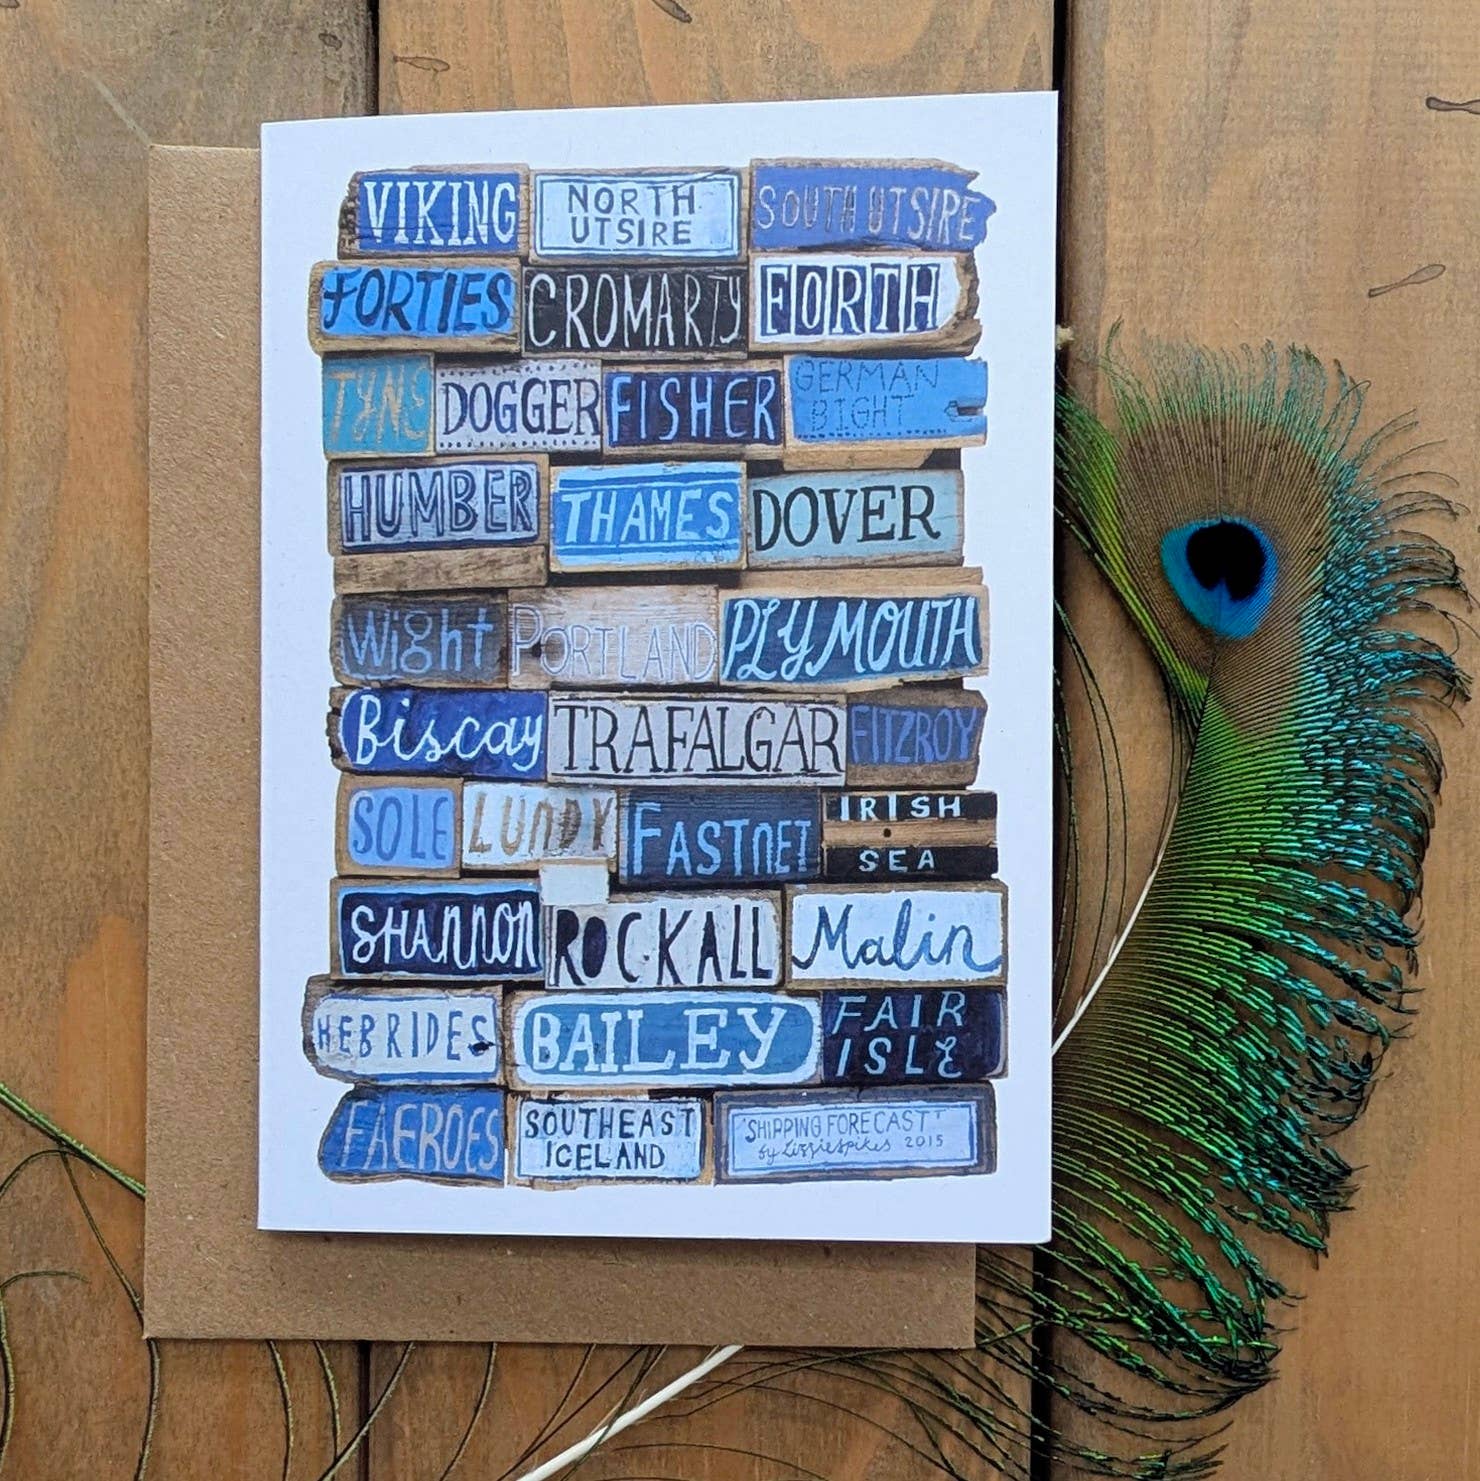 VIKING
NORTH
UTSIRE
SOUTH UTSIRE
FORTIES
CROMARTY
FORTH
TYNE
DOGGER
FISHER
GERMAN
BIGHT
HUMBER
THAMES
DOVER
Wight
PORTLAND
PLYMOUTH
Biscay
TRAFALGAR
FITZROY
SOLE
LUNDY
FASTNET
IRISH
SEA
SHANNON
ROCKALL
Malin
HEBRIDES
BAILEY
FAIR
ISLE
FAEROES
SOUTHEAST
ICELAND
'SHIPPING FORECAST'
by Lizziespikes 2015